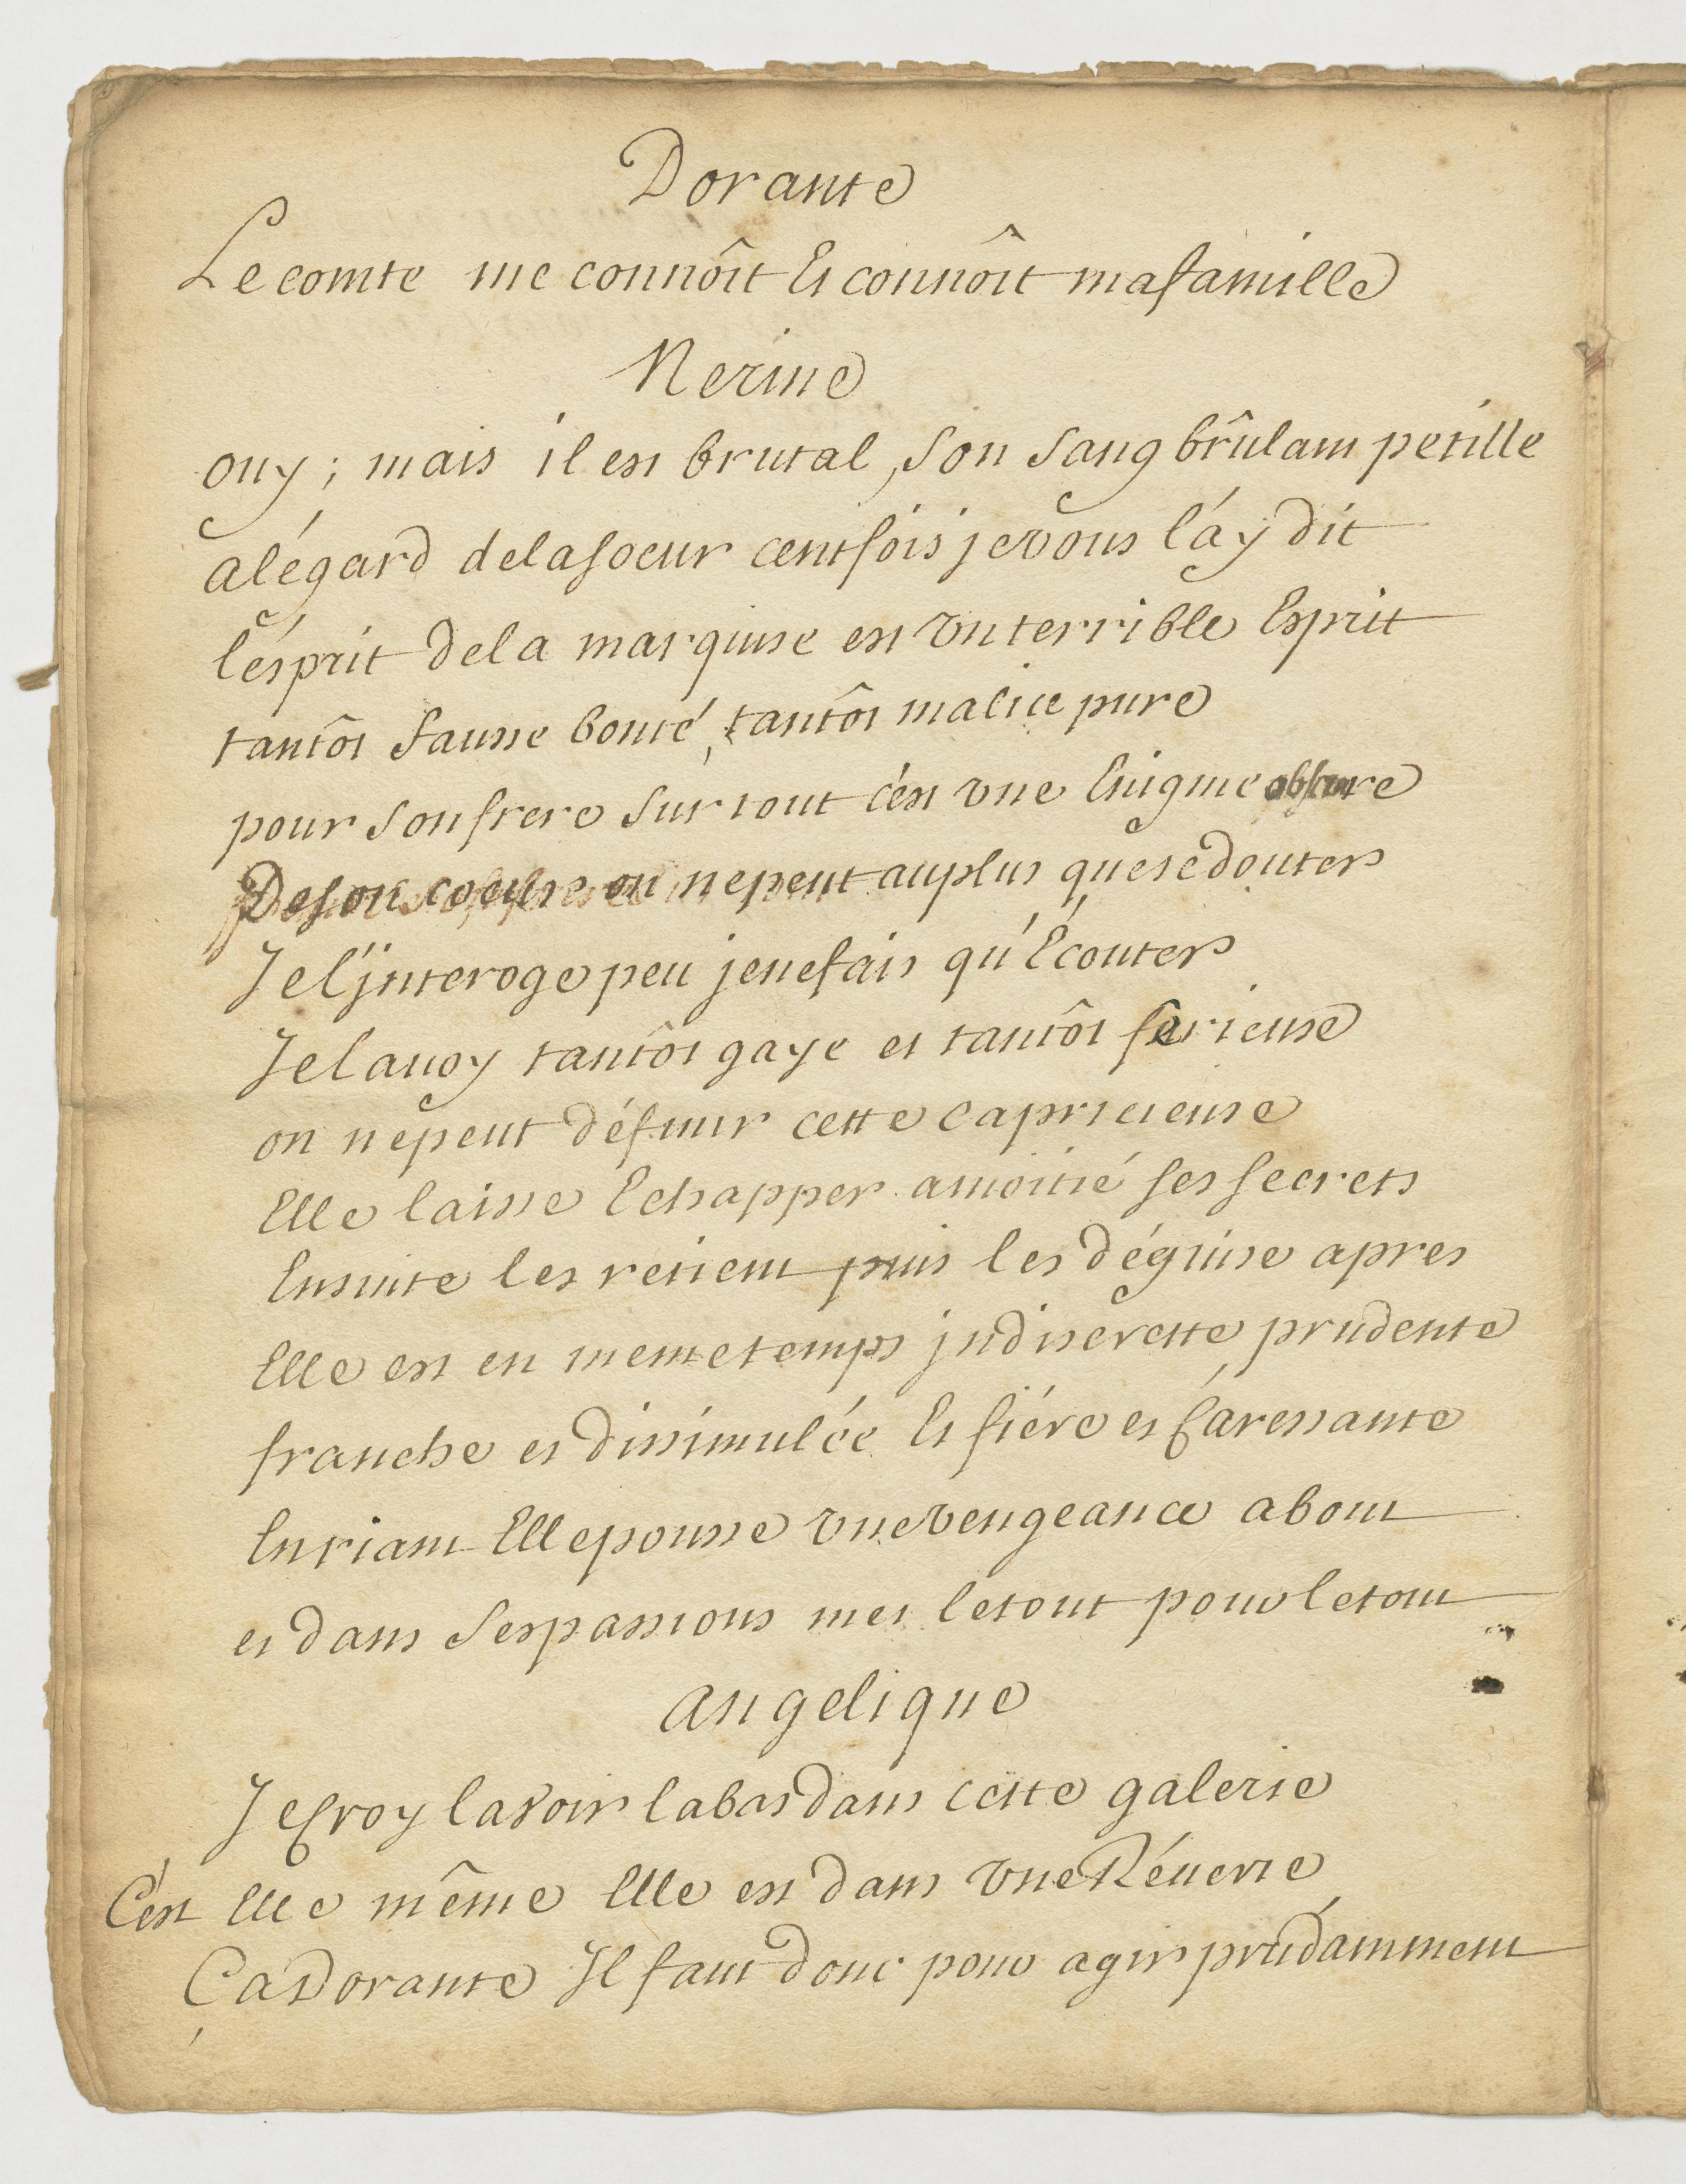 Dorante
Le comte me connôit Et connôit ma famille
Nerine
ouy; mais il est brutal, son sang brûlant petille
al'égard de la soeur cent fois je vous l'áy dit
l'ésprit de la marquise est vn terrible Esprit
tantôt fausse bonté, tantôt malice pure
pour son frere sur tout c'ést vne Enigme obscure
De son coeur on ne peut au plus que se douter
Je l'jnteroge peu je ne fais qu'Écouter
Je la uoy tantôt gaye et tantôt serieuse
on ne peut définir cette capricieuse
Elle laisse Echapper a moitié ses secrets
Ensuite les retient puis les déguise apres
Elle est en meme temps jndiscrette prudente
franche et dissimulée Et fiére et Caressante
En riant Elle pousse vne vengeance a bout
et dans ses passions met le tout pour le tout
angelique
Je Croy la voir la bas dans cette galerie
C'ést Elle même Elle est dans vne Réuerie
Ça Dorante Il faut donc pour agir prudamment